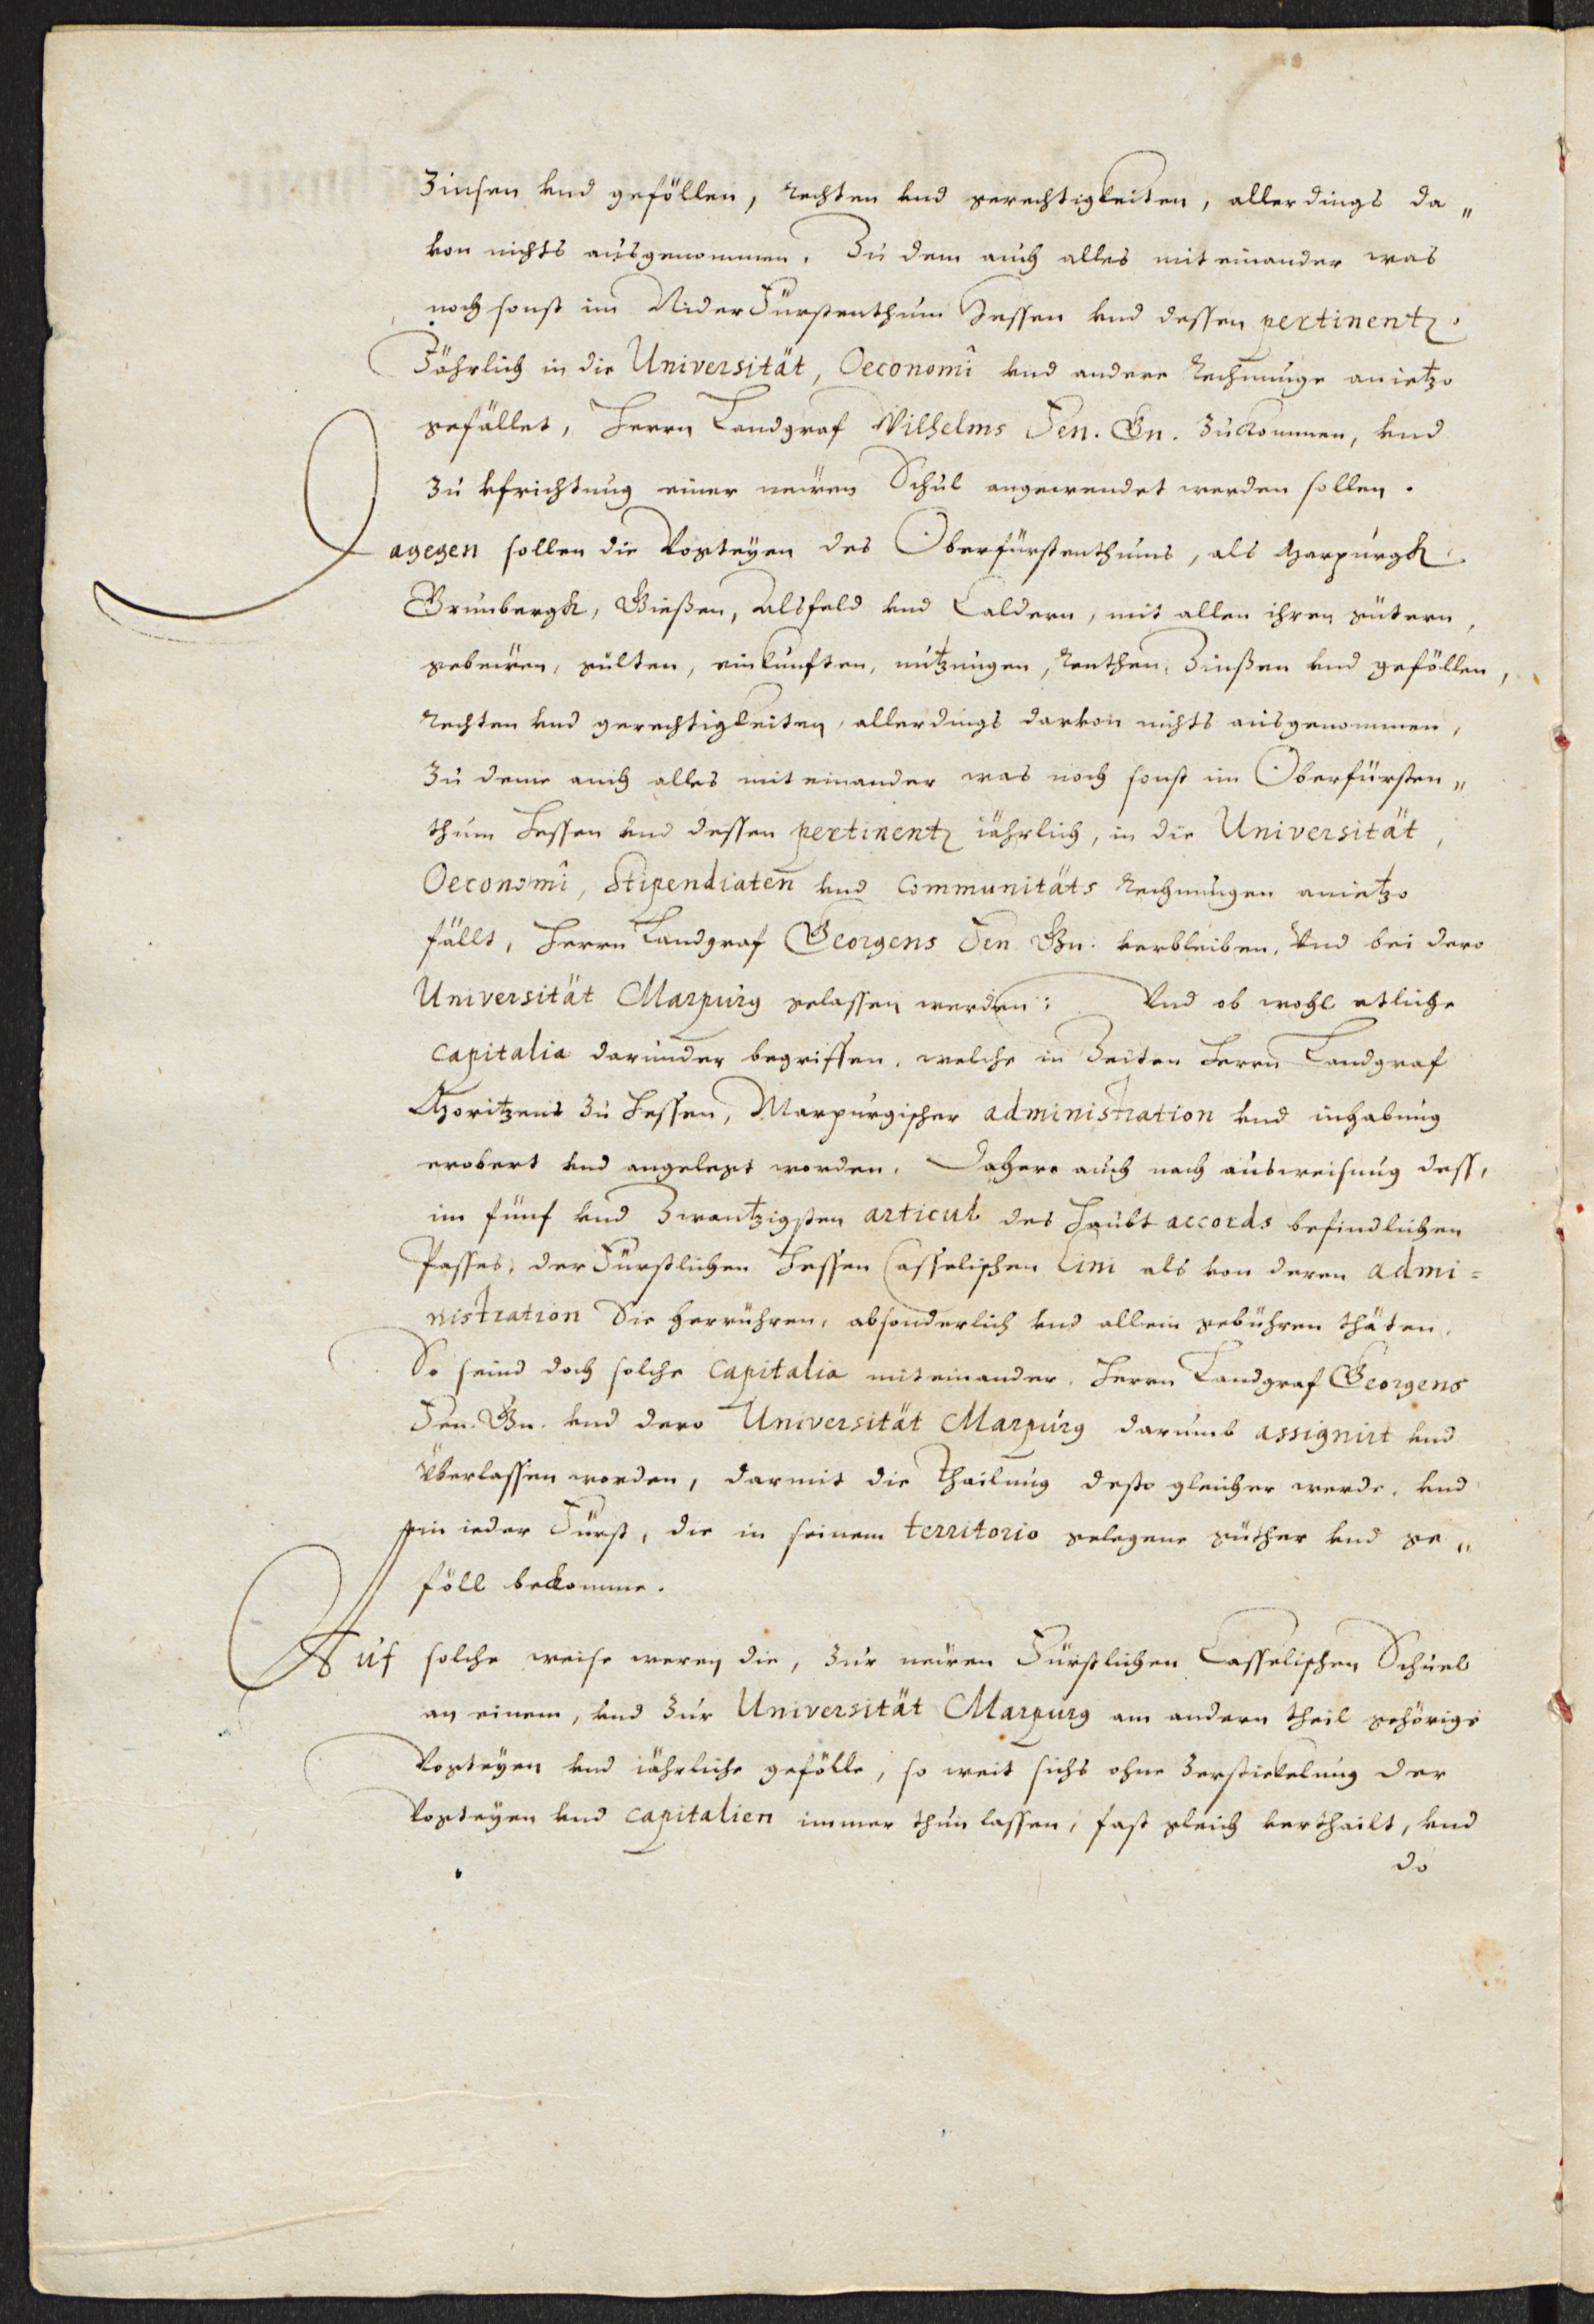 Zinsen vnd geföllen, Rechten vnd gerechtigkeiten, allerdings da„
von nichts ausgenommen. Zu dem auch alles mit einander was
noch sonst im NiderFürstenthum Hessen vnd dessen pertinentz
Jährlich in die Universität, Oeconomî vnd andere Rechnunge anietzo
gefället, Herrn Landgraf Wilhelms Fen. Gn. zukommen, vnd
zu vfrichtung einer neüwen Schul angewendet werden sollen.
Dagegen sollen die Vogteyen des Oberfürstenthums, als Marpurgk
Grünbergk, Gießen, Alsfeld vnd Caldern, mit allen ihren gütern,
gebeüwen, gülten, einkunften, nutzungen, Renthen, Zinßen vnd geföllen,
Rechten vnd gerechtigkeiten, allerdings darvon nichts ausgenommen,
Zu deme auch alles mit einander was noch sonst im Oberfürsten„
thum Hessen vnd dessen pertinentz iährlich, in die Universität,
Oeconomî, Stipendiaten vnd Communitäts Rechnungen anietzo
fällt, Herrn Landgraf Georgens Fen Gn. verbleiben, Vnd bei dero
Universität Marpurg gelassen werden: Vnd ob wohl etliche
Capitalia darunder begriffen, welche in Zeiten Herrn Landgraf
Moritzens zu Hessen, Marpurgischer administration vnd inhabung
erobert vnd angelegt worden, Dahero auch nach ausweisung dess,
im fünf vnd Zwantzigsten articul des Haubt accords befindlichen
Passes, der Fürstlichen Hessen Casselischen Lini als von deren admi=
nistration Sie herrühren, absonderlich vnd allein gebühren thäten,
So seind doch solche Capitalia miteinander, Herrn Landgraf Georgens
Fen. Gn. vnd dero Universität Marpurg darumb assignirt vnd
überlassen worden, darmit die Theilung desto gleicher werde, vnd
ein ieder Fürst, die in seinem territorio gelegene güther vnd ge„
föll bekomme.
Auf solche weise weren die, zur neüwen Fürstlichen Casselischen Schuel
an einem, vnd zur Universität Marpurg am andern theil gehörige
Vogteyen vnd iährliche gefölle, so weit sichs ohne Zerstückelung der
Vogteyen vnd Capitalien immer thun lassen, fast gleich vertheilt, vnd
do